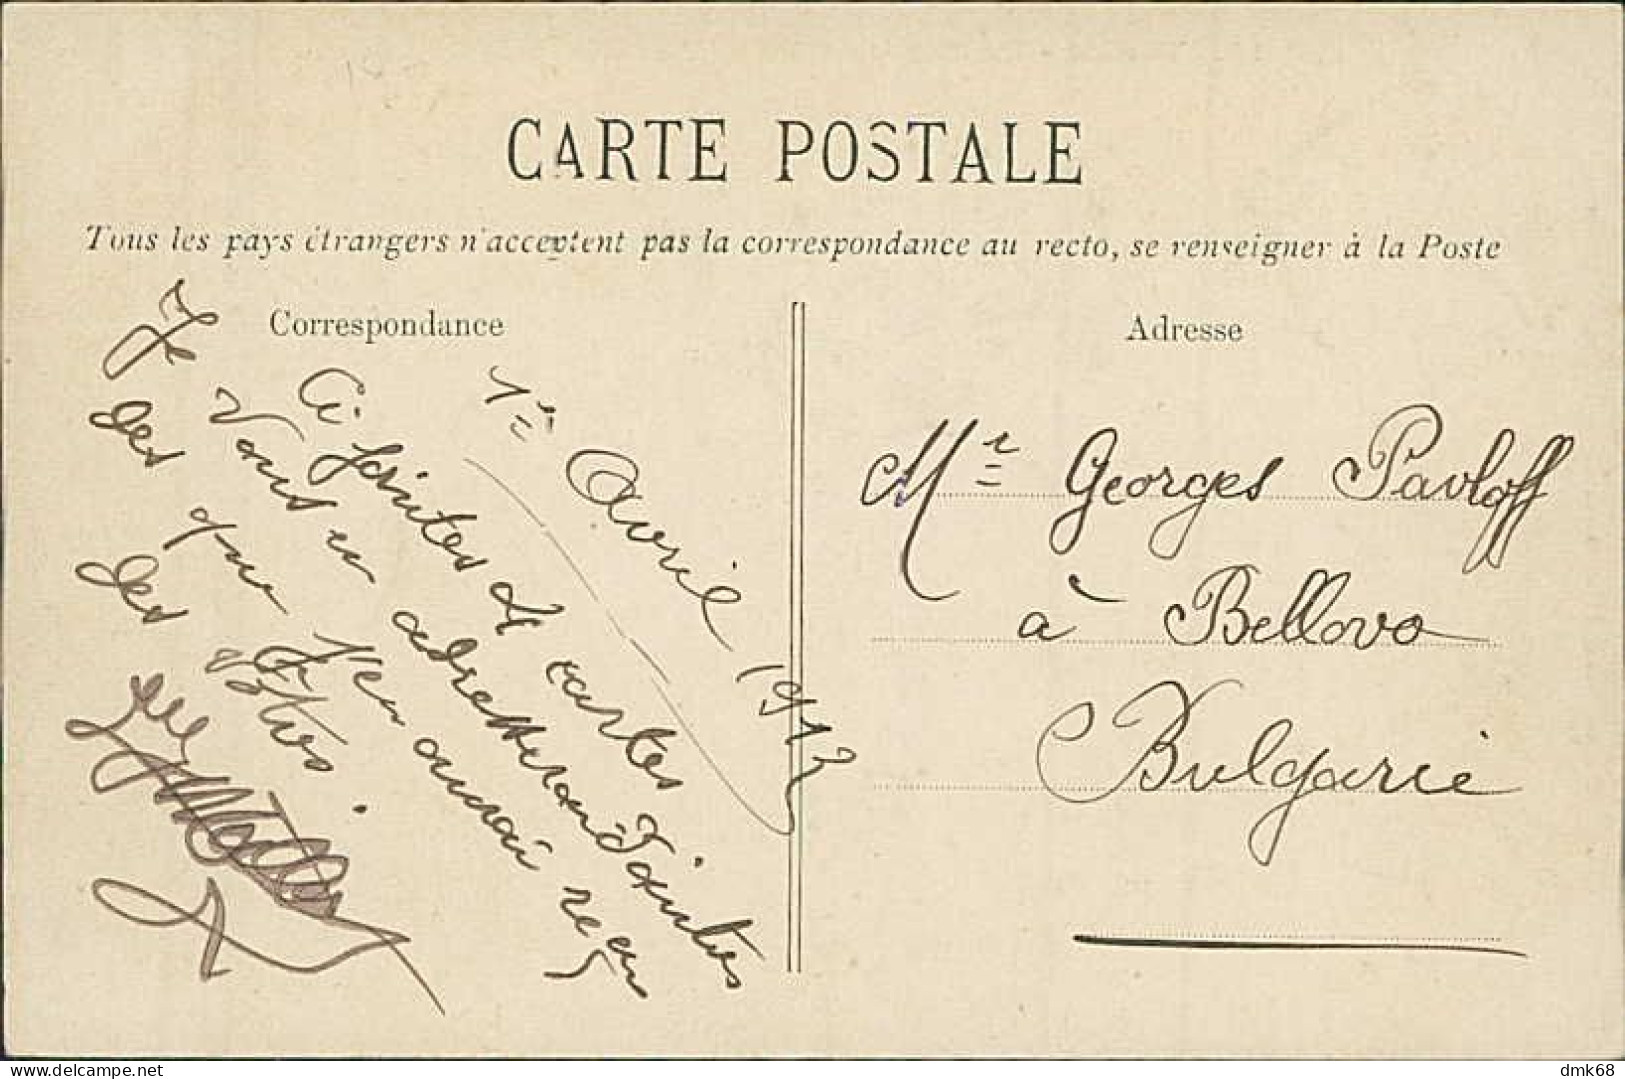 CARTE POSTALE
Tous les pays étrangers n'acceptent pas la correspondance au recto, se renseigner à la Poste
Correspondance
Adresse
1er Avril 1912
Ci jointes de cartes
Je vous en adresserai d'autres
des que j'en aurai reçu
des votres.
Mr Georges Pavloff
à Bellovo
Bulgarie
delcampe.net
dmk68